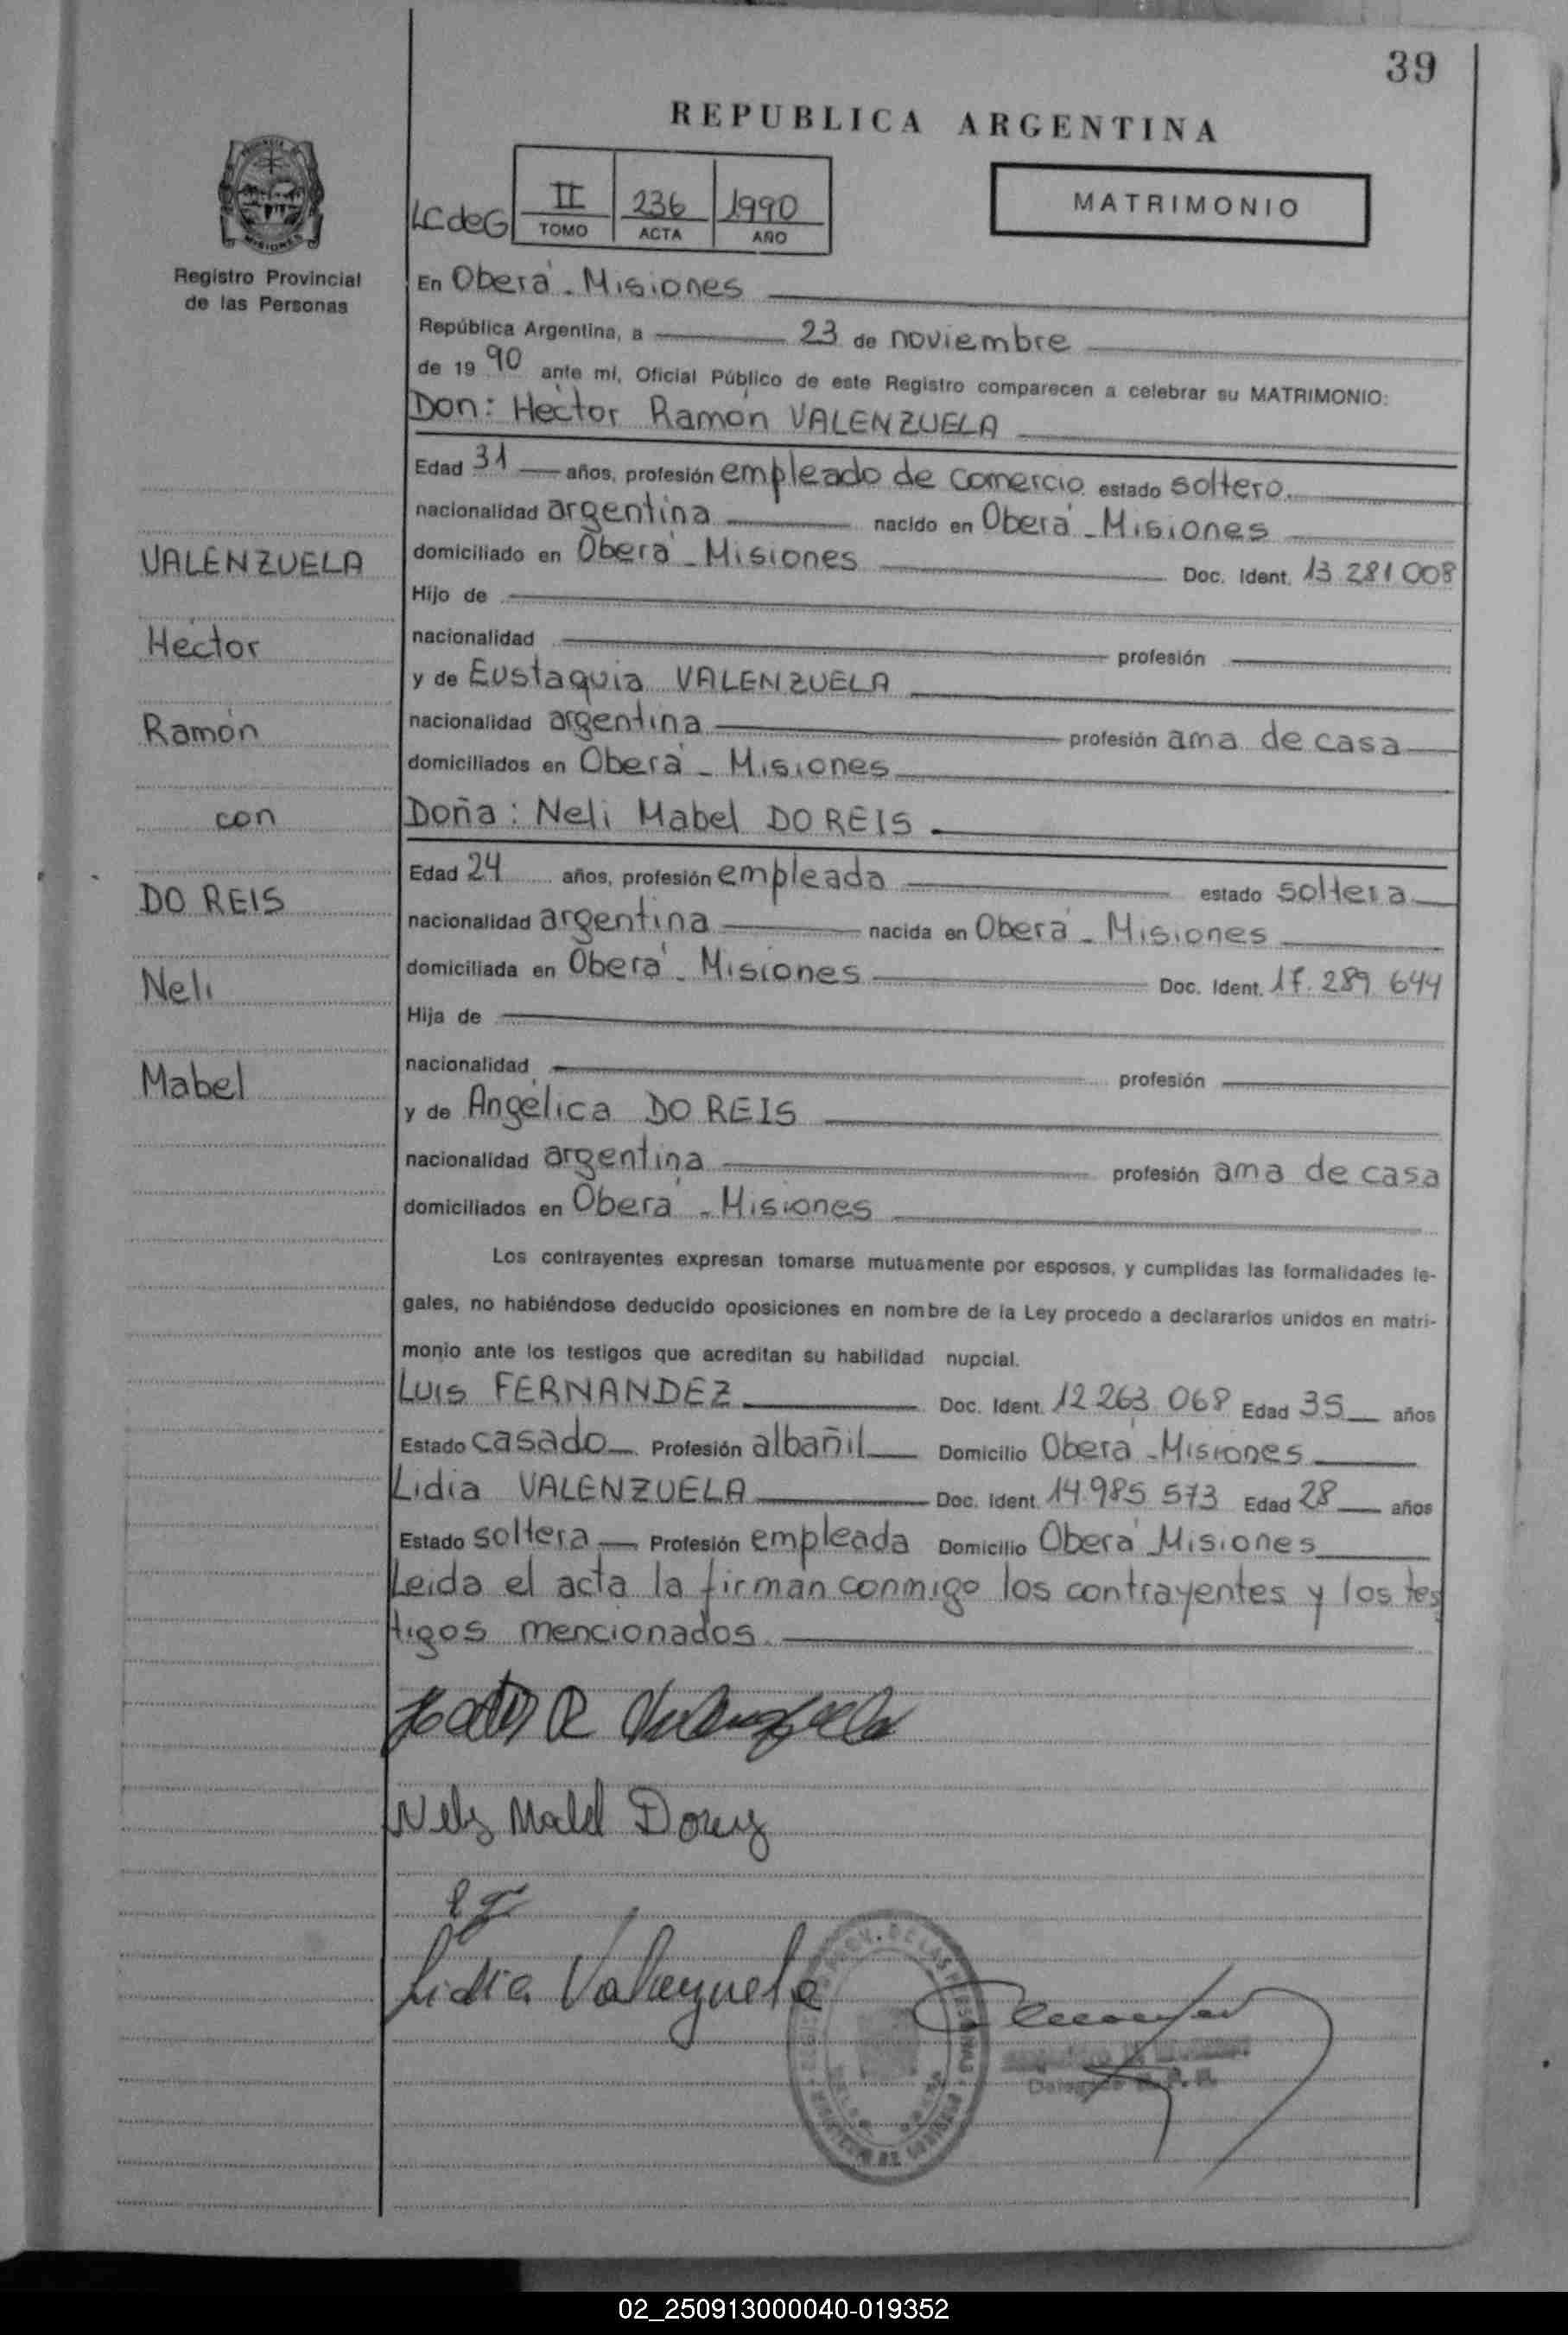 39
REPUBLICA ARGENTINA
MATRIMONIO
LC de G
II 236 1990
TOMO ACTA AÑO
Registro Provincial
de las Personas
En Oberá - Misiones
República Argentina, a 23 de noviembre
de 19 90 ante mí, Oficial Público de este Registro comparecen a celebrar su MATRIMONIO:
Don: Héctor Ramón VALENZUELA
Edad 31 años, profesión empleado de comercio estado soltero.
nacionalidad argentina nacido en Oberá - Misiones
domiciliado en Oberá - Misiones Doc. Ident. 13 281 008
Hijo de
nacionalidad profesión
y de Eustaquia VALENZUELA
nacionalidad argentina profesión ama de casa
domiciliados en Oberá - Misiones
Doña: Neli Mabel DO REIS
Edad 24 años, profesión empleada estado soltera
nacionalidad argentina nacida en Oberá - Misiones
domiciliada en Oberá - Misiones Doc. Ident. 17.289 644
Hija de
nacionalidad profesión
y de Angélica DO REIS
nacionalidad argentina profesión ama de casa
domiciliados en Oberá - Misiones
VALENZUELA
Héctor
Ramón
con
DO REIS
Neli
Mabel
Los contrayentes expresan tomarse mutuamente por esposos, y cumplidas las formalidades le-
gales, no habiéndose deducido oposiciones en nombre de la Ley procedo a declararlos unidos en matri-
monio ante los testigos que acreditan su habilidad nupcial.
Luis FERNANDEZ Doc. Ident. 12 263 068 Edad 35 años
Estado casado Profesión albañil Domicilio Oberá - Misiones
Lidia VALENZUELA Doc. Ident. 14.985 573 Edad 28 años
Estado soltera Profesión empleada Domicilio Oberá Misiones
Leida el acta la firman conmigo los contrayentes y los tes
tigos mencionados.
Lidia Valenzuela
02_250913000040-019352